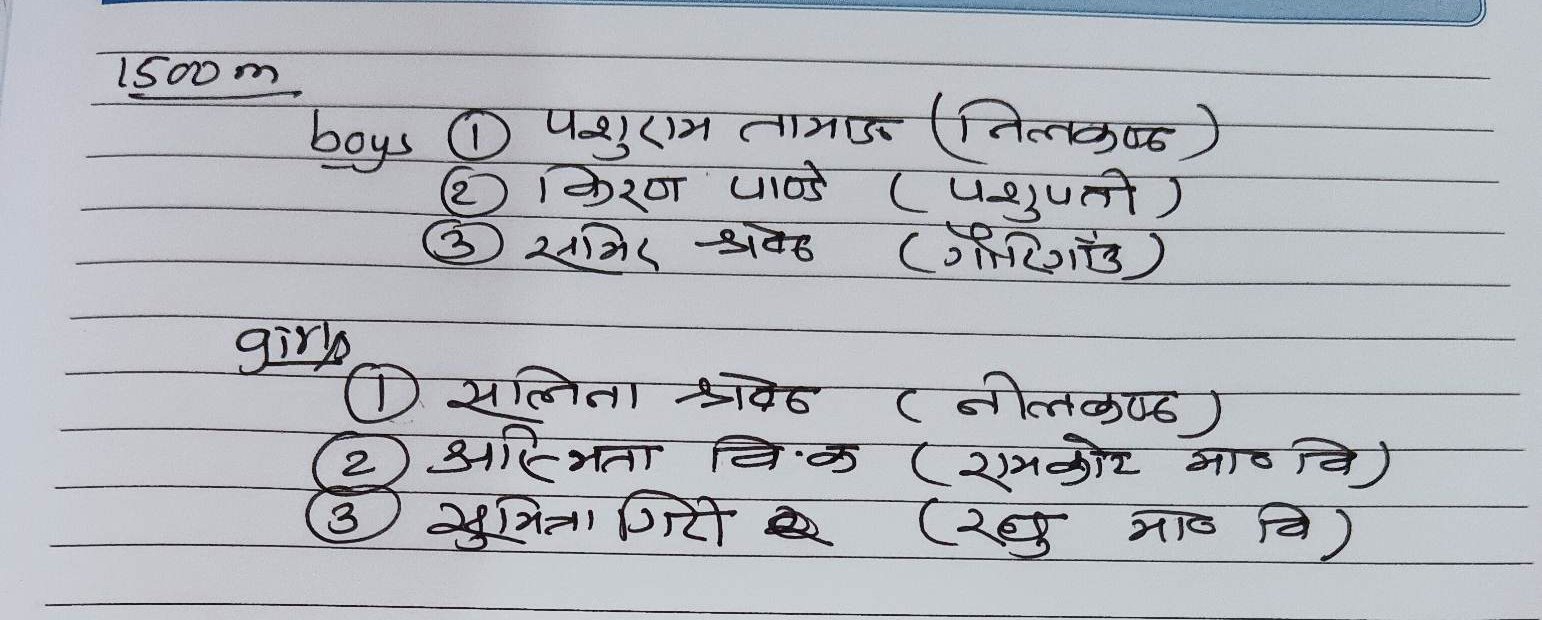 1500 m
boys ① पशुराम तामाङ (निलकण्ठ)
② किरण पाण्डे (पशुपती)
③ समिर श्रेष्ठ (गौरिगाँउ)
girls
① सलिना श्रेष्ठ (नीलकण्ठ)
② अस्मिता वि.क (रामकोट मा० वि)
③ सुमित्रा गिरी (रघु मा० वि)